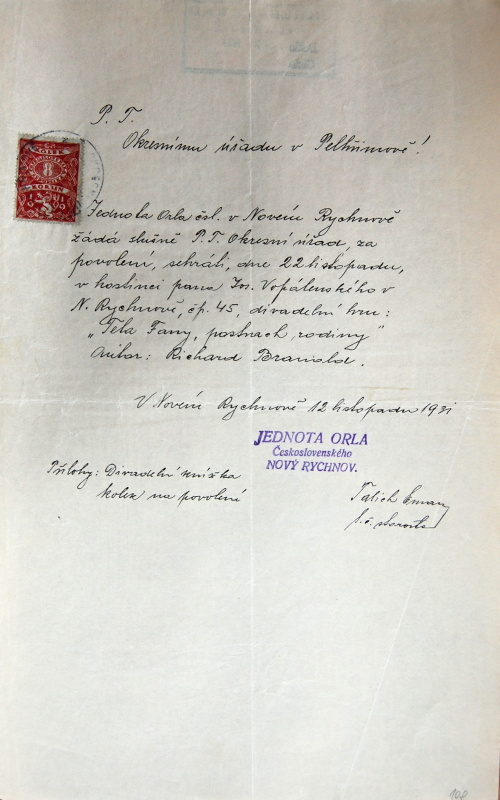 P. T.
Okresnímu úřadu v Pelhřimově!
KOLEK
8
KORUN
1931
Jednota Orla čsl. v Novém Rychnově
žádá slušně P. T. Okresní úřad, za
povolení, sehráti, dne 22 listopadu,
v hostinci pana Jos. Vopálenského v
N. Rychnově, čp. 45, divadelní hru:
„Teta Fany, postrach rodiny"
Autor: Richard Branald.
V Novém Rychnově 12 listopadu 1931
JEDNOTA ORLA
Československého
NOVÝ RYCHNOV.
Přílohy: Divadelní knížka
kolek na povolení
t. č. starosta
108